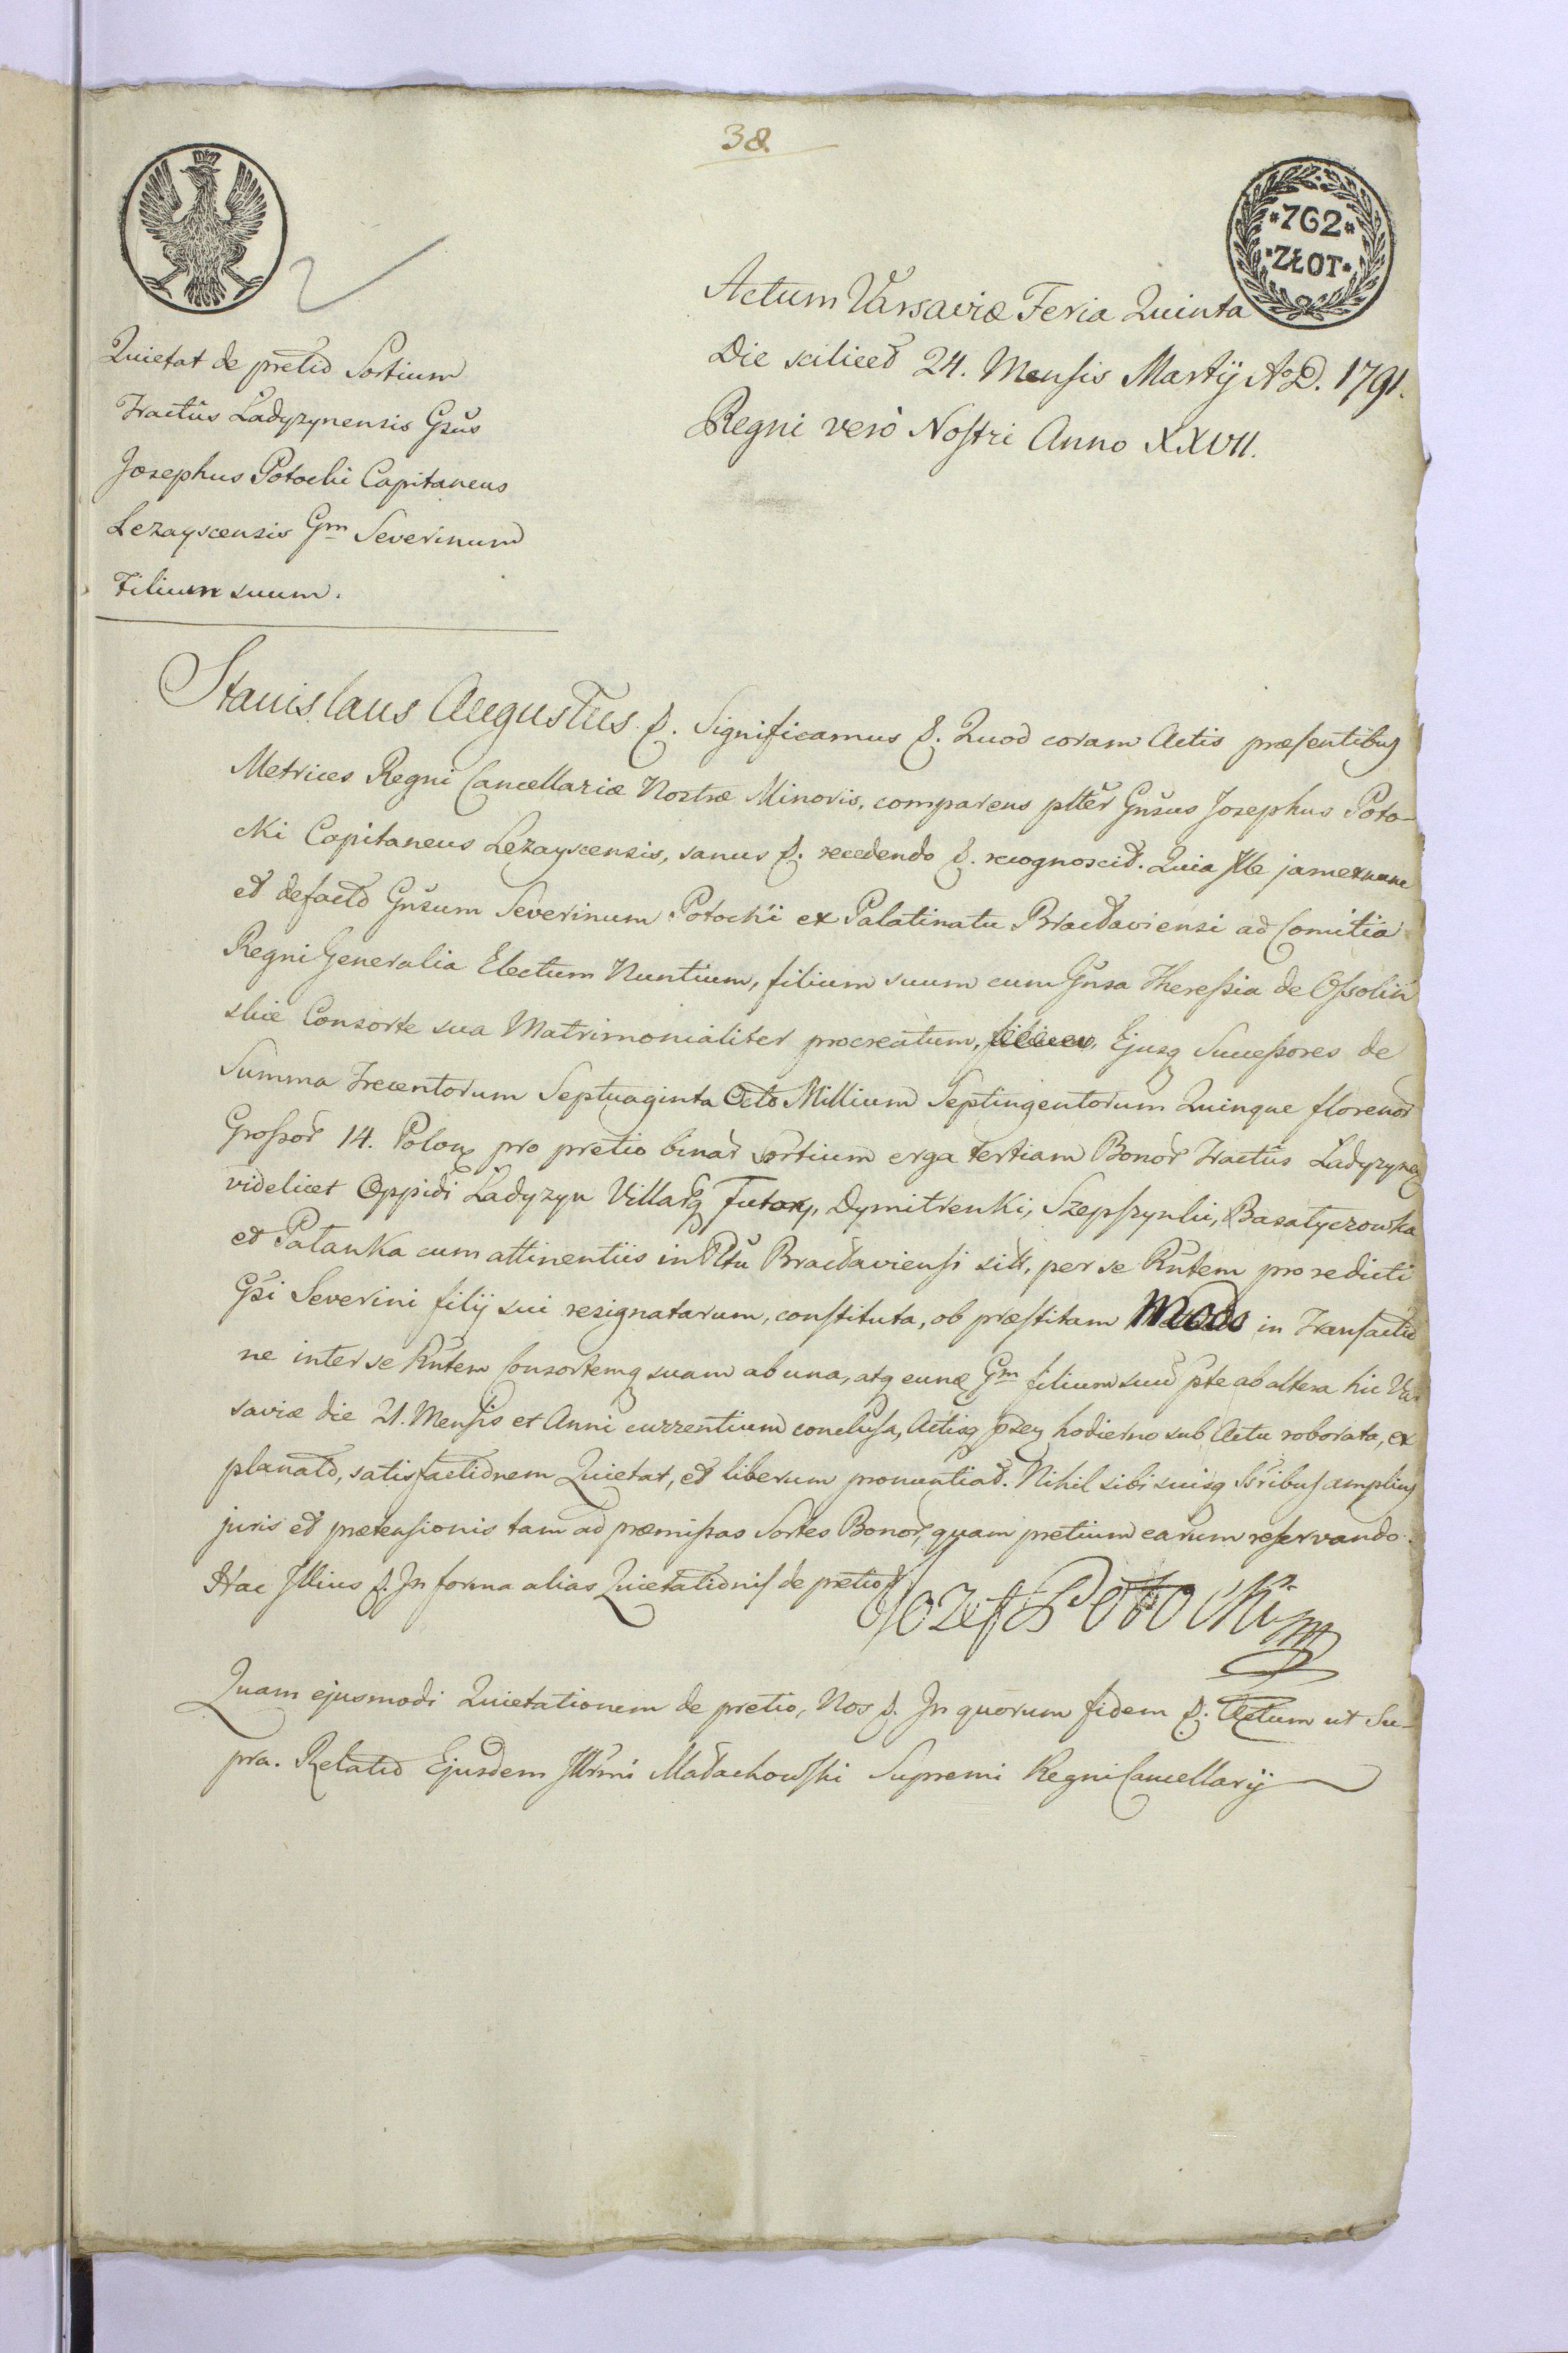 38.
*762*
*ZŁOT*
Actum Varsaviæ Feria Quinta
Die scilicet 24. Mensis Martij A°D. 1791.
Regni verò Nostri Anno XXVII.
Quietat de pretio Sortium
Tractûs Ladyzynensis Gsus
Josephus Potocki Capitaneus
Lezayscensis Gm Severinum
Filium suum.
Stanislaus Augustus &. Significamus &. Quod coram Actis præsentibus
Metrices Regni Cancellariæ Nostræ Minoris, comparens plter Gnsus Josephus Poto-
cki Capitaneus Lezayscensis, sanus &. recedendo &. recognoscit. Quia Ille jam exnunc
et defacto Gnsum Severinum Potocki ex Palatinatu Bracłaviensi ad Comitia
Regni Generalia Electum Nuntium, filium suum cum Gnsa Theressia de Ossoliń
skie Consorte sua Matrimonialiter procreatum, Ejusq Successores de
Summa Trecentorum Septuaginta Octo Millium Septingentorum Quinque florenor
Grossor 14. Polon pro pretio binar Sortium erga tertiam Bonor Tractûs Ladyzynen
videlicet Oppidi Ladyzyn Villarq Futory, Dymitrenki, Szepszynki, Basatyczowka
et Patanka cum attinentiis in Pltu Bracłaviensi sitt, per se Rntem pro redicti
Gsi Severini filij sui resignatarum, constituta, ob præstitam modo in Transactio
ne inter se Rntem Consortemq suam ab una, atq eunq Gm filium suu pte ab altera hic Var
saviæ die 21. Mensis et Anni currentium conclusa, Actisq pseq hodierno sub Actu roborata, ex
planato, satisfactionem Quietat, et liberum pronuntiat. Nihil sibi suisq Ssribus amplius
juris et prætensionis tam ad præmissas Sortes Bonor, quam pretium earum reservando.
Hac Illius &. In forma alias Quietationis de pretio
Jozef Potocki mp
Quam ejusmodi Quietationem de pretio, Nos &. In quorum fidem &. Actum ut Su-
pra. Relatio Ejusdem Illrmi Małachowski Supremi Regni Cancellarij